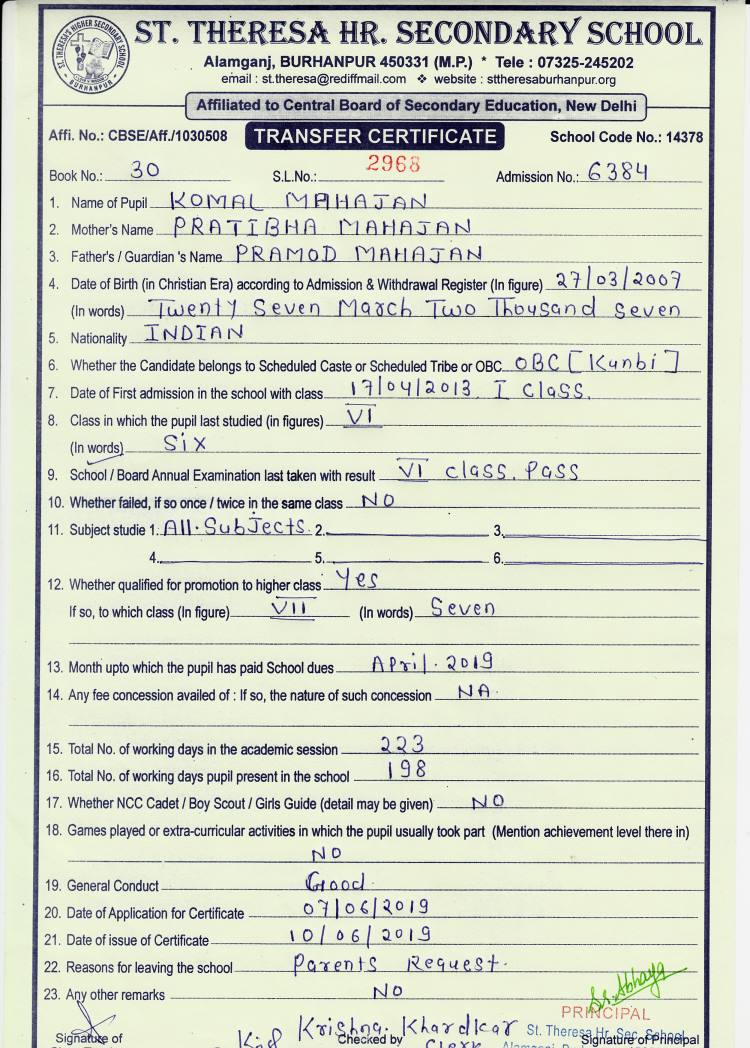 ST. THERESA HR. SECONDARY SCHOOL
ST. THERESA'S HIGHER SECONDARY SCHOOL
BURHANPUR
Alamganj, BURHANPUR 450331 (M.P.) * Tele : 07325-245202
email : st.theresa@rediffmail.com ❖ website : sttheresaburhanpur.org
Affiliated to Central Board of Secondary Education, New Delhi
Affi. No.: CBSE/Aff./1030508 TRANSFER CERTIFICATE School Code No.: 14378
Book No.: 30 S.L.No.: 2968 Admission No.: 6384
1. Name of Pupil KOMAL MAHAJAN
2. Mother's Name PRATIBHA MAHAJAN
3. Father's / Guardian 's Name PRAMOD MAHAJAN
4. Date of Birth (in Christian Era) according to Admission & Withdrawal Register (In figure) 27/03/2007
(In words) Twenty Seven March Two Thousand Seven
5. Nationality INDIAN
6. Whether the Candidate belongs to Scheduled Caste or Scheduled Tribe or OBC OBC [Kunbi]
7. Date of First admission in the school with class 17/04/2013, I Class.
8. Class in which the pupil last studied (in figures) VI
(In words) Six
9. School / Board Annual Examination last taken with result VI class. Pass
10. Whether failed, if so once / twice in the same class NO
11. Subject studie 1. All. Subjects. 2. 3.
4. 5. 6.
12. Whether qualified for promotion to higher class Yes
If so, to which class (In figure) VII (In words) Seven
13. Month upto which the pupil has paid School dues April. 2019
14. Any fee concession availed of : If so, the nature of such concession NA.
15. Total No. of working days in the academic session 223
16. Total No. of working days pupil present in the school 198
17. Whether NCC Cadet / Boy Scout / Girls Guide (detail may be given) NO
18. Games played or extra-curricular activities in which the pupil usually took part (Mention achievement level there in)
NO
19. General Conduct Good.
20. Date of Application for Certificate 07/06/2019
21. Date of issue of Certificate 10/06/2019
22. Reasons for leaving the school Parents Request.
23. Any other remarks NO
Sr. Abhaya
PRINCIPAL
Krishna Khardkar St. Theresa Hr. Sec. School
Signature of Checked by Signature of Principal
Clerk